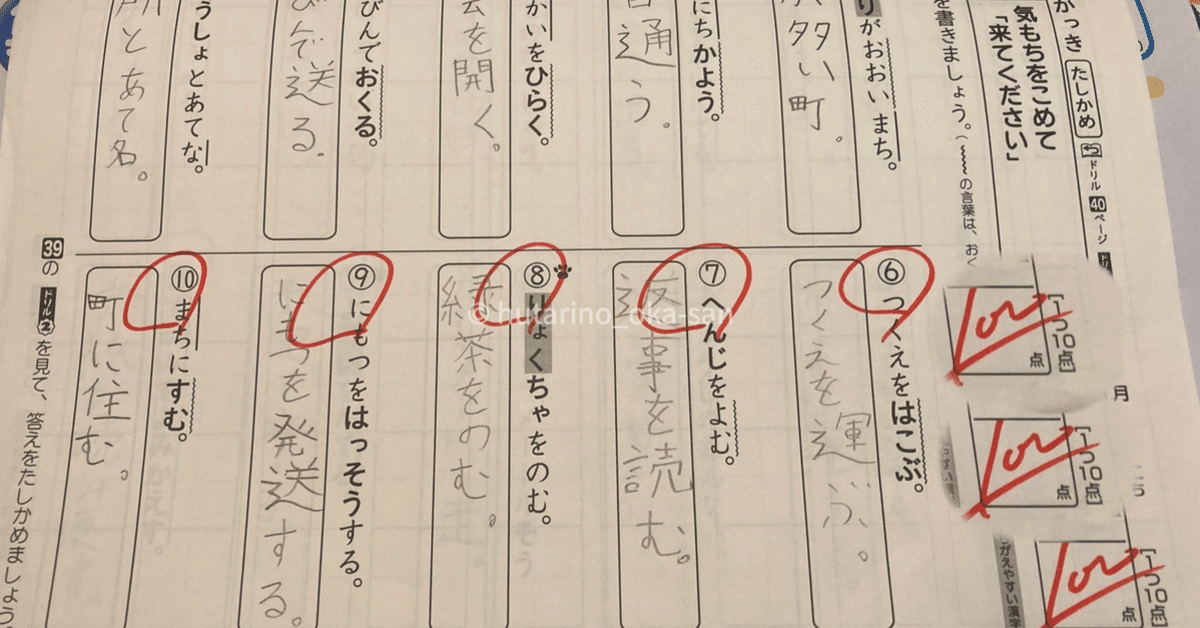 かっき たしかめ ドリル 40 ページ
気もちをこめて
「来てください」
を書きましょう。(〰の言葉は、おく
りがおおいまち。
多い町。
にちかよう。
通う。
かいをひらく。
を開く。
びんでおくる。
びんで送る。
うしょとあてな。
所とあて名。
[1つ10点]
100
点
[1つ10点]
100
点
[1つ10点]
100
点
月
⑥つくえをはこぶ。
つくえを運ぶ。
⑦へんじをよむ。
返事を読む。
⑧りょくちゃをのむ。
緑茶をのむ。
⑨にもつをはっそうする。
にもつを発送する。
⑩まちにすむ。
町に住む。
39の ドリル②を見て、答えをたしかめましょう
© hutarino_oka-san